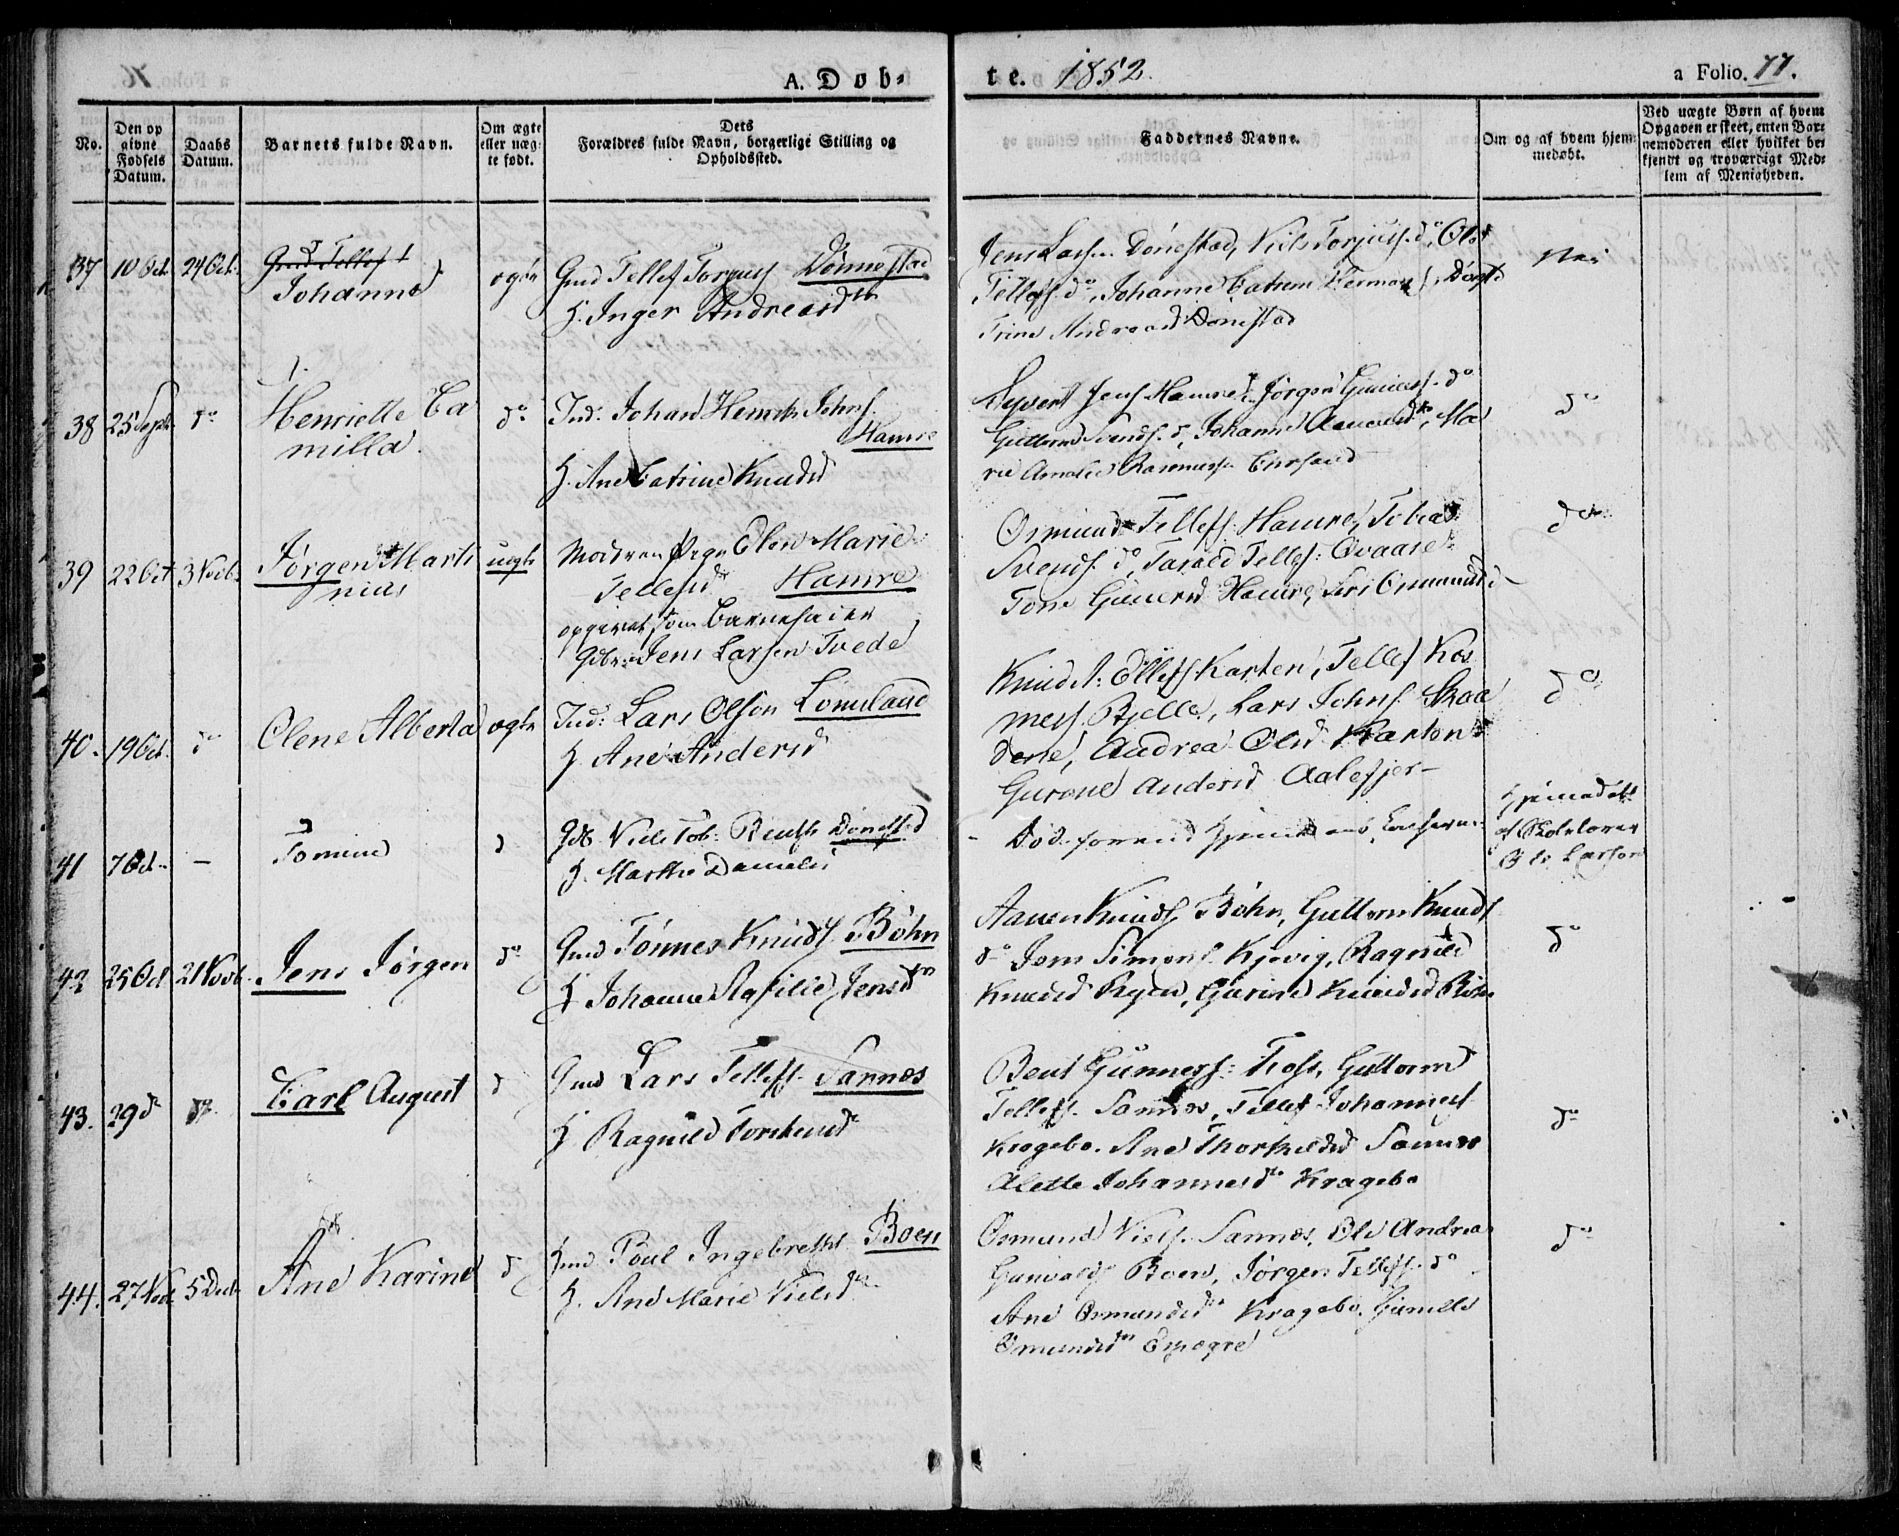 A. Døb-
te. 1852.
a Folio. 77.
No.
Den op
givne
Fødsels
Datum.
Daabs
Datum.
Barnets fulde Navn.
Om ægte
eller uæg-
te født.
Dets
Forældres fulde Navn, borgerlige Stilling og
Opholdssted.
Faddernes Navne.
Om og af hvem hjem-
medøbt.
Ved uægte Børn af hvem
Opgaven er skeet, enten Bar-
nemoderen eller hvilket be-
kjendt og troværdigt Med-
lem af Menigheden.
37 10 Oct. 24 Oct.
Johanne
ægte
Gmd Tellef Torjuss Dønnestad
H. Inger Andreasd
Jens Lars Dønestad, Niels Torjuss. do, Ole
Tellefs. do, Johanne Catrine
Trine Andreasd Dønestad
Nei
38 25 Sept. do
Henriette Ca
milla.
do
Ind. Johan Henrik Johns.
Hamre
H. Ane Catrine Knudsd
Syvert Jens Hamre, Jørgen do
Guttorm Svends. d, Johanne Ma
rie Amalie Rasmuss
do
39 22 Oct 3 Novb.
Jørgen Marti
nius
uægte
Moder Pige Elen Marie
Tellefsd Hamre
opgivet som Barnefader
Jens Larsen Tvede
Osmund Tellefs. Hamre, Tobias
Svends. do, Tarald Tellefs. Qvaase
Tone Gunersd Hamre, Siri Osmundsd
do
40. 19 Oct. do
Olene Alberta
ægte
Ind. Lars Olsen Lomeland
H. Ane Andersd
Knud A. Ellefs Karten, Tellef Ras
mess. Bjelle, Lars Johns. Skaa
dene, Andrea Olsd Karten
Gurone Andersd Aalefjer
do
41 7 Oct. —
Tomine
d
Niels Tob. Bents. Dønestad
H. Marthe Danielsd
Død
Hjemmedøbt
af Skolelærer
Ole Larsen
42 25 Oct 21 Novb.
Jens Jørgen
do
Gmd Tønnes Knuds. Bøhn
H Johanne Rafilie Jensd
Aanen Knuds. Bøhn, Guttorm Knuds
do Jens Simons. Kjevig, Ragnild
Knudsd Ryen, Gurine Knudsd Bøhn
do
43. 29 d do
Carl August
d
Gmd Lars Tellefs. Sannes
H Ragnild Torkeld
Bent Gunners. Foss, Guttorm
Tellefs. Sannes, Tellef Johanness
Kragebo. Ane Thorkeldsd Sannes
Alette Johannesd Kragebo
do
44. 27 Nov. 5 Decb.
Ane Karine
d
Gmd Poul Ingebreths Boen
H. Ane Marie Nielsd
Osmund Niels. Sannes. Ole Andreas
Gunvalds Boen, Jørgen Tellefs. do
Ane Osmundsd Kragebo. Gunille
Osmundsd
do